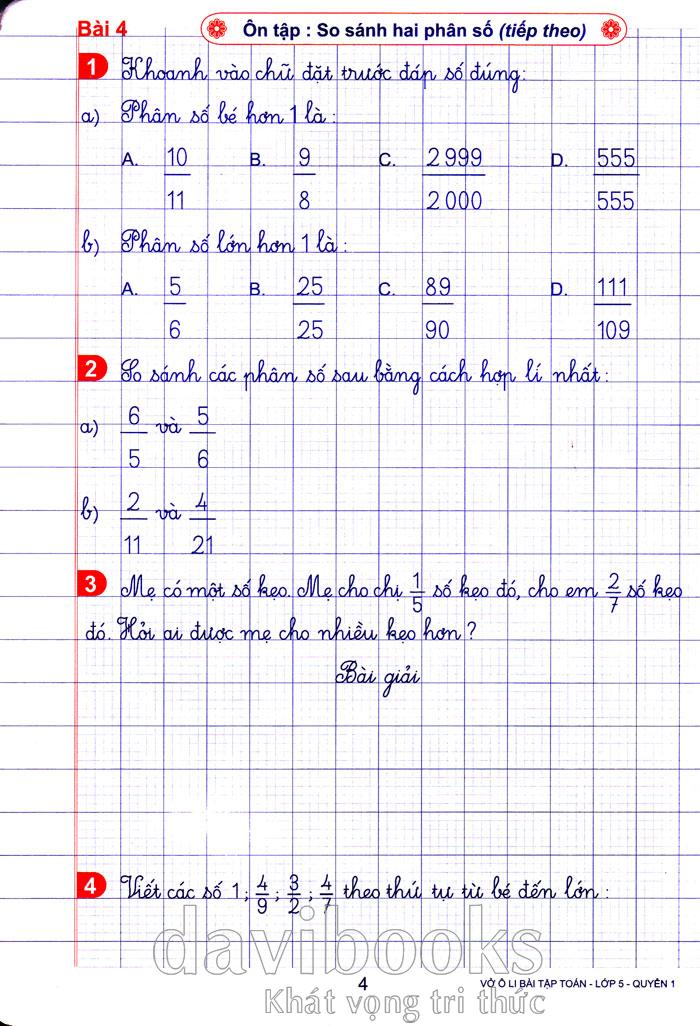 Bài 4 Ôn tập : So sánh hai phân số (tiếp theo)
1 Khoanh vào chữ đặt trước đáp số đúng:
a) Phân số bé hơn 1 là :
A. 10/11 B. 9/8 C. 2 999/2 000 D. 555/555
b) Phân số lớn hơn 1 là :
A. 5/6 B. 25/25 C. 89/90 D. 111/109
2 So sánh các phân số sau bằng cách hợp lí nhất :
a) 6/5 và 5/6
b) 2/11 và 4/21
3 Mẹ có một số kẹo. Mẹ cho chị 1/5 số kẹo đó, cho em 2/7 số kẹo
đó. Hỏi ai được mẹ cho nhiều kẹo hơn ?
Bài giải
4 Viết các số 1 ; 4/9 ; 3/2 ; 4/7 theo thứ tự từ bé đến lớn :
davibooks
4 VỞ Ô LI BÀI TẬP TOÁN - LỚP 5 - QUYỂN 1
Khát vọng tri thức